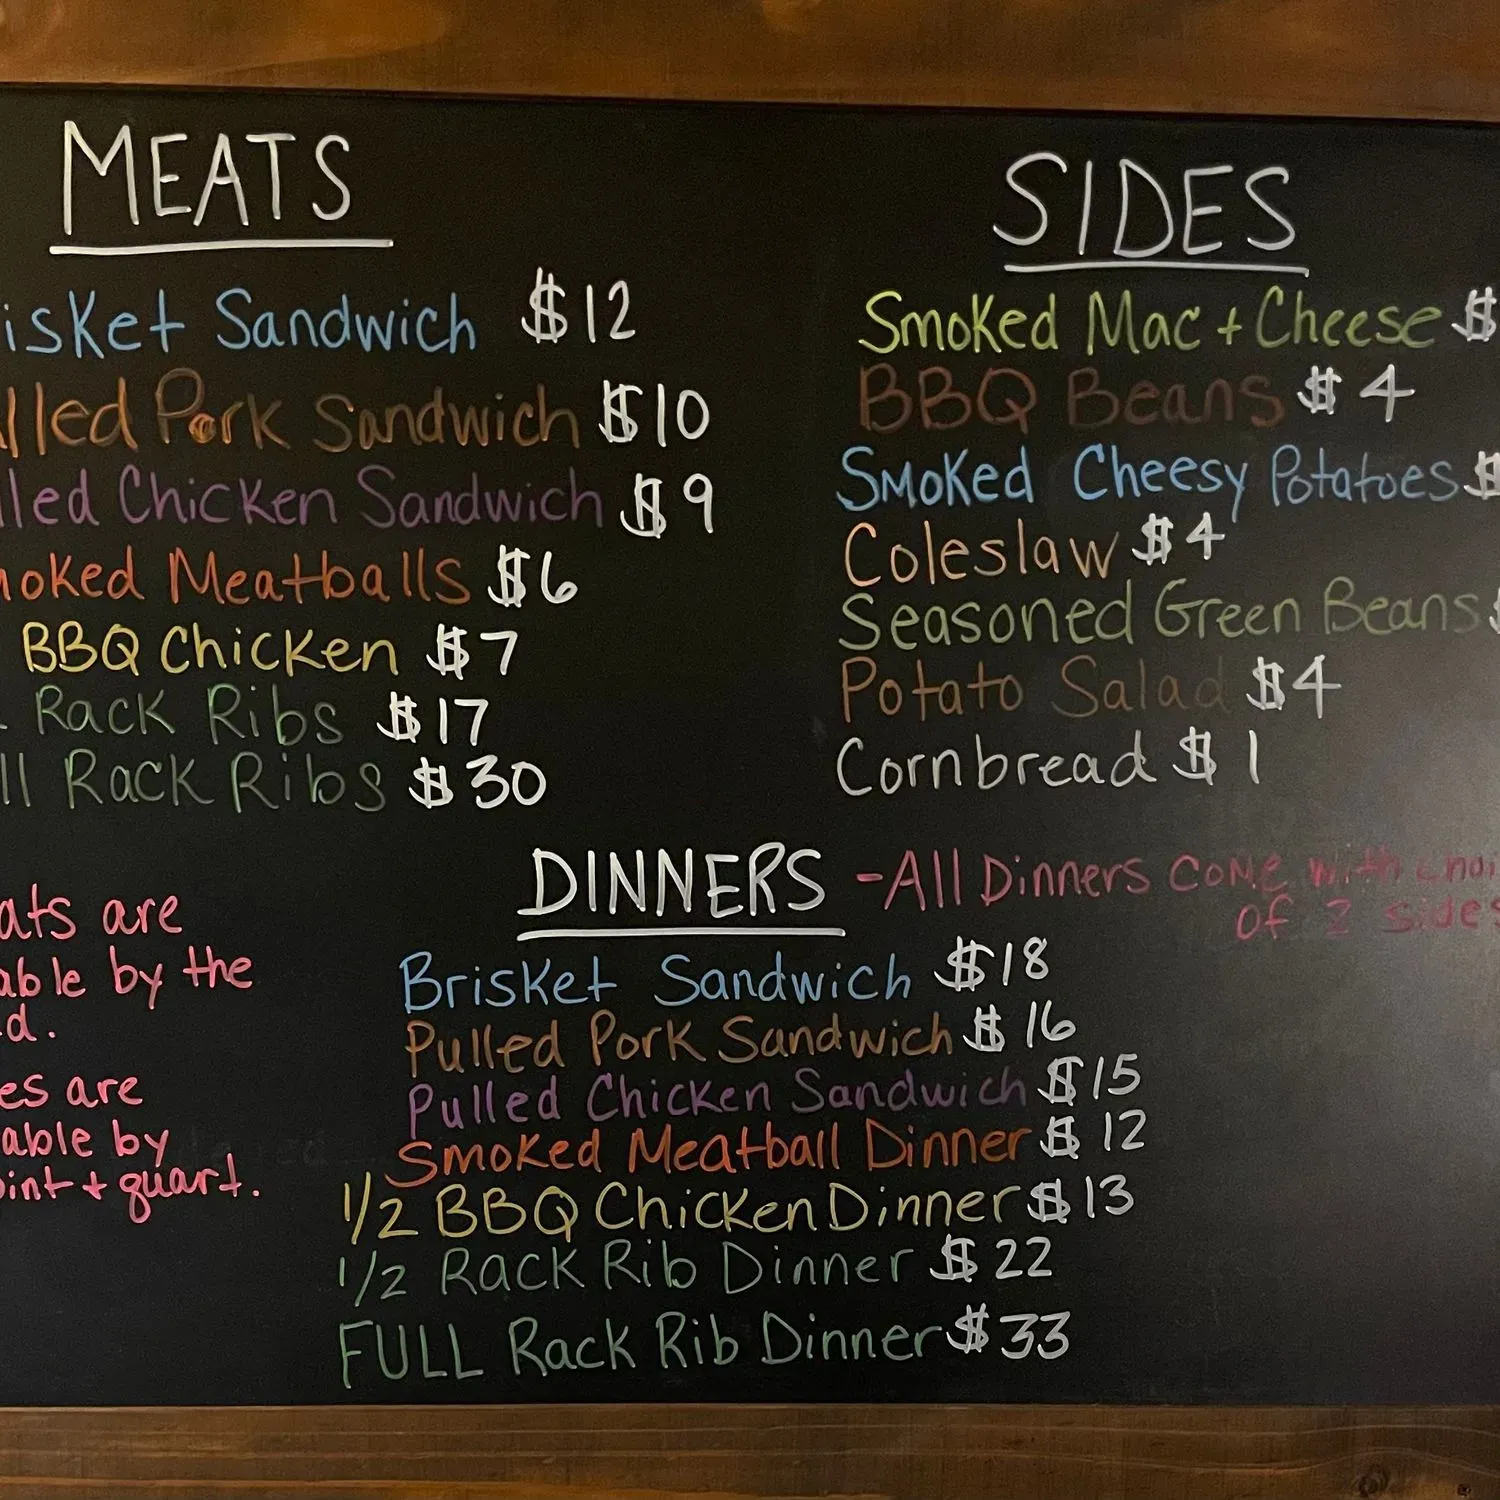 MEATS
isket Sandwich $12
lled Pork Sandwich $10
lled Chicken Sandwich $9
moked Meatballs $6
BBQ Chicken $7
Rack Ribs $17
ll Rack Ribs $30
SIDES
Smoked Mac + Cheese $
BBQ Beans $4
Smoked Cheesy Potatoes $
Coleslaw $4
Seasoned Green Beans $
Potato Salad $4
Cornbread $1
ats are
able by the
d.
es are
able by
oint + quart.
DINNERS -All Dinners come with choi
of 2 sides
Brisket Sandwich $18
Pulled Pork Sandwich $16
Pulled Chicken Sandwich $15
Smoked Meatball Dinner $12
1/2 BBQ Chicken Dinner $13
1/2 Rack Rib Dinner $22
FULL Rack Rib Dinner $33